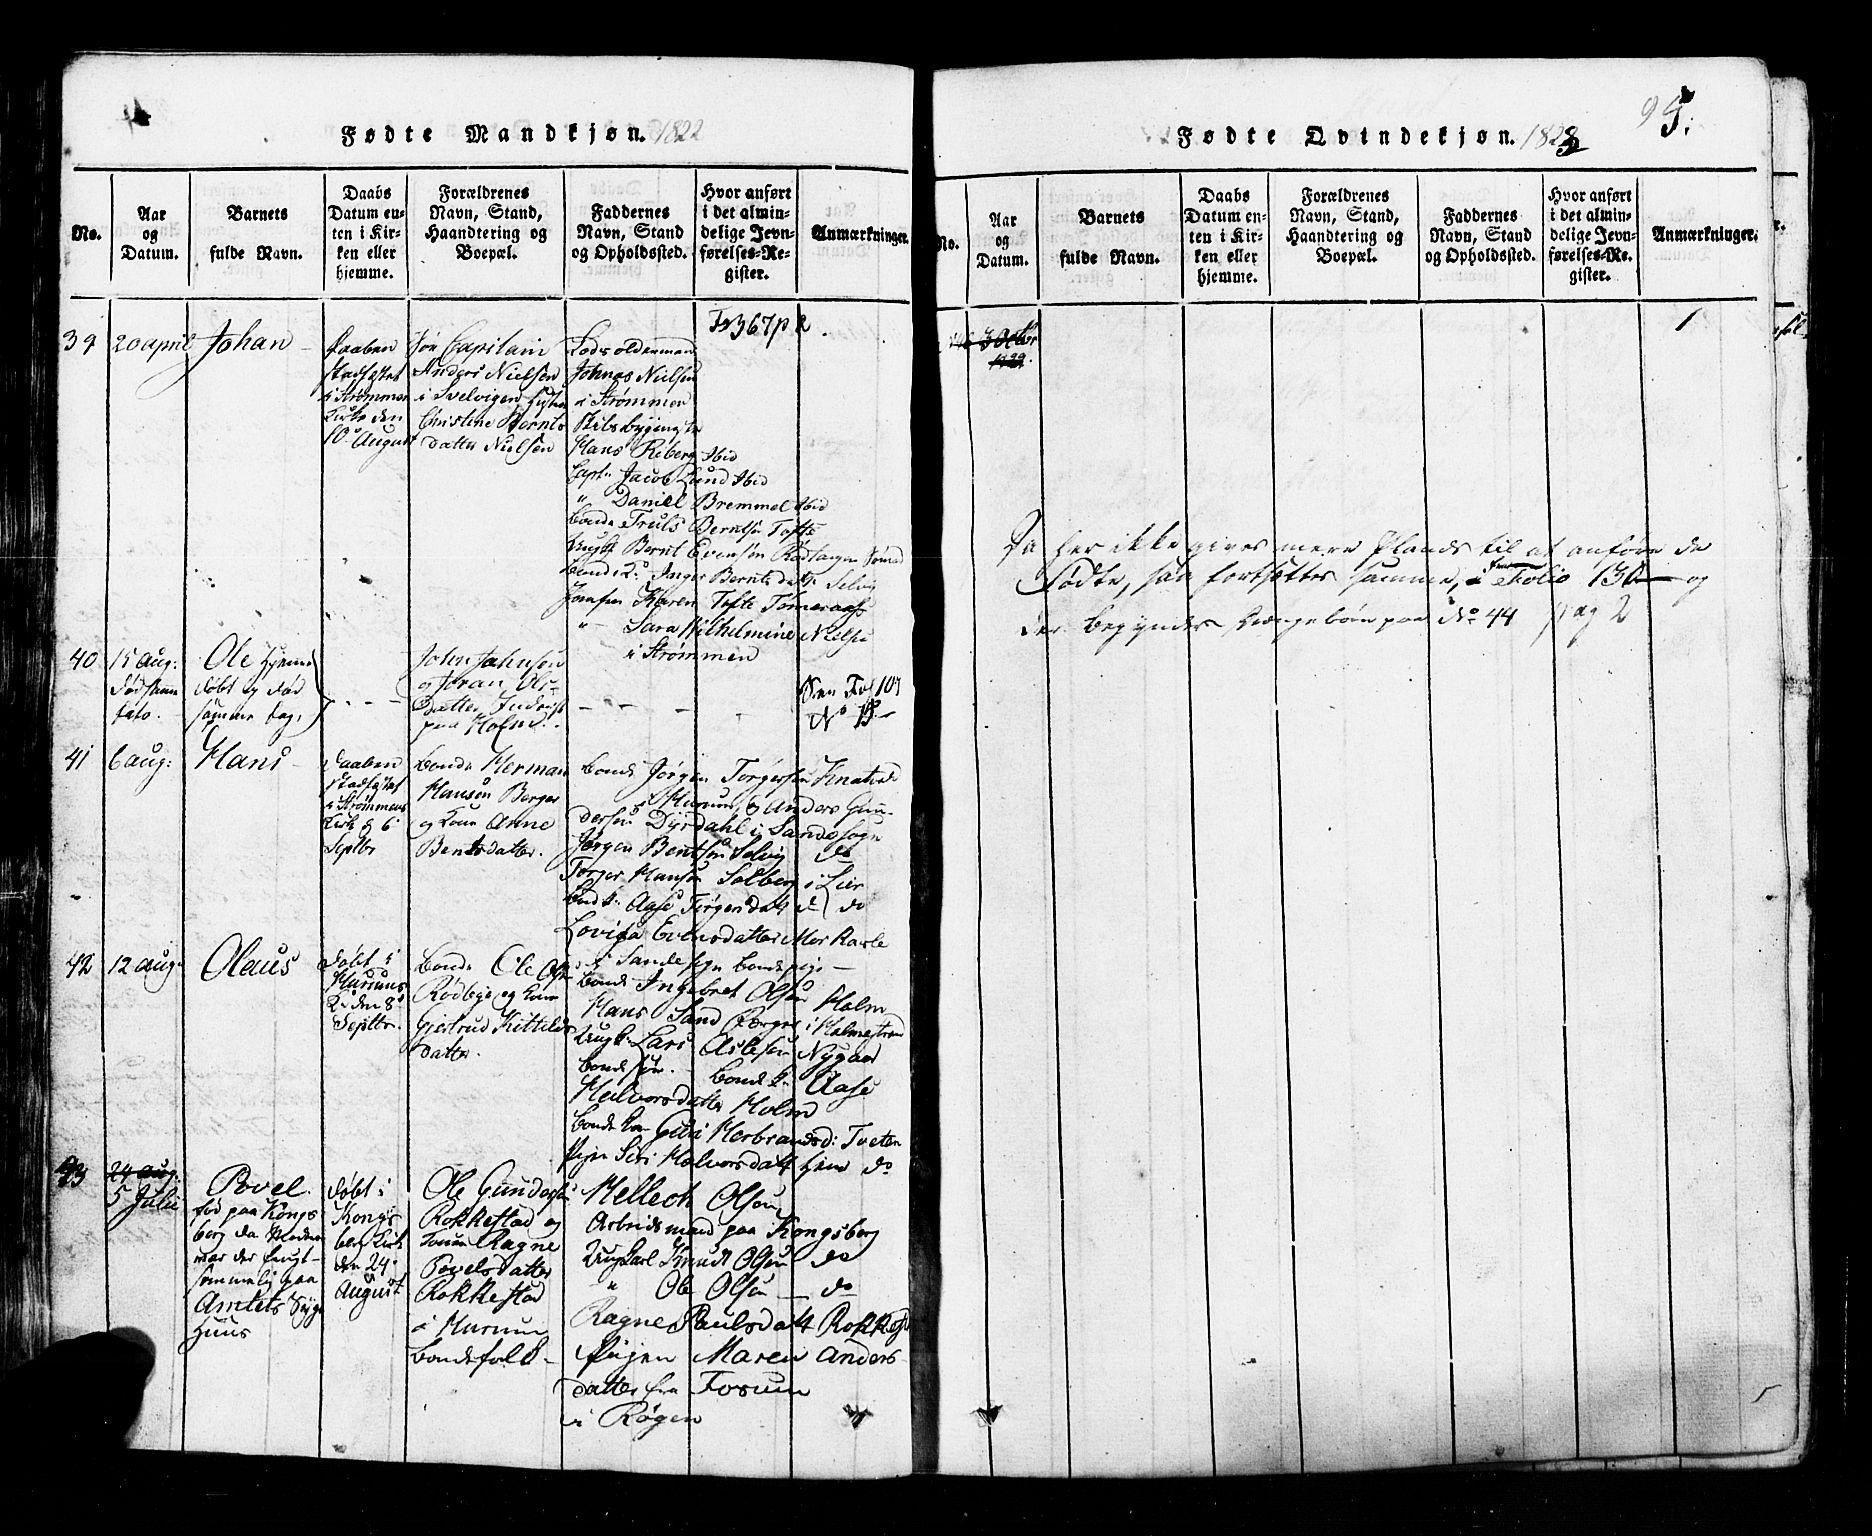 Fødte Mandkjøn. 1822
No.
Aar og Datum.
Barnets fulde Navn.
Daabs Datum enten i Kirken eller hjemme.
Forældrenes Navn, Stand, Haandtering og Boepæl.
Faddernes Navn, Stand og Opholdssted.
Hvor anført i det almindelige Jevnførelses-Register.
Anmærkninger.
39
20 april
Johan
Daaben
stadfæstet
i Strømmen
Kirke den
10 August
Capitain
Anders Nielsen
i Svelvigen
Christine Bernts
datter Nielsen
Lods oldermand
Johnas Nielsen
i Strømmen
Hans Riberg Ibid
Capt. Jacob Lund Ibid
" Daniel Bremmel Ibid
bonde Truls Berntsen Tofte
Ungk Bernt Evensen
Inger Berntsdatt. Selvig
Jomfru Karen Tofte
" Sara Wilhelmine Nielsen
i Strømmen
Fr 367 p 2
40
15 aug:
død samme
dato.
Ole hjemme
døbt og død
samme dag,
John Johnson
og Joran Ols-
datter
paa Holm.
Fol 109
No 13
41
6 aug:
Hans
Daaben
stadfæstet
i Strømmens
Kirke d 6
Septbr
bonde Herman
Hansen Berger
og kone Anne
Bentsdatter.
bonde Jørgen Torgersen
i Hurum, og Anders Gun-
dersen Dyrdahl i Sande sogn
Jørgen Bentsen Selvig do
Torger Hansen Solberg i Lier
Aase Jørgensdatt do
Lovisa Evensdatter
i Sande sogn bondepige
42
12 aug:
Olaus
døbt i
Hurums
K. den 8
Septbr.
bonde Ole Olsen
Rødbye og kone
Gjertrud Kittilds
datter.
bonde Ingebret Olsen Holm
Hans Sand Berger i Holmestrand
Ungk: Lars Aslesen Nygaard
bonde søn. bonde k: Aase
Halvorsdatter Holm
bonde kone Guri Herbrandsd: Tveten
Pigen Siri Halvorsdatt do
43
24 aug:
5 Julii
Povel
født paa Kongs
berg da Moderen
var der
paa
Amtets Syge
Huus
døbt i
Kongs
berg Kirke
den 24
August
Ole Gundersen
Rokkestad og
kone Ragne
Povelsdatter
Rokkestad
i Hurum
bondefolk
Hellech Olsen
Arbeidsmand paa Kongsberg
Ungkarl Knudt Olsen do
" Ole Olsen do
Ragne Paulsdatt Rokkestad
Pigen Maren Anders-
datter fra
i Røgen
Fødte Qvindekjøn. 1823
95.
No.
Aar og Datum.
Barnets fulde Navn.
Daabs Datum enten i Kirken eller hjemme.
Forældrenes Navn, Stand, Haandtering og Boepæl.
Faddernes Navn, Stand og Opholdssted.
Hvor anført i det almindelige Jevnførelses-Register.
Anmærkninger.
Da her ikke gives mere Plads til at anføre de
Fødte, saa fortsættes samme, i Folio 130 og
der begyndes Drengebørn paa No 44 pag 2